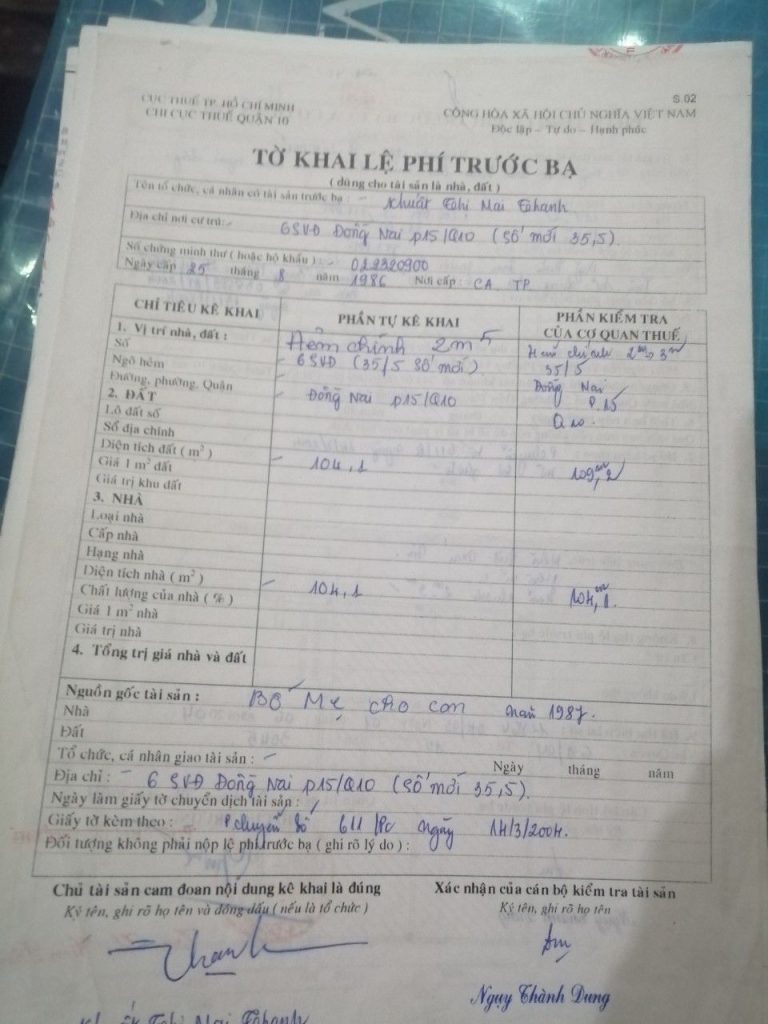 S.02
CỤC THUẾ TP. HỒ CHÍ MINH
CHI CỤC THUẾ QUẬN 10
CỘNG HÒA XÃ HỘI CHỦ NGHĨA VIỆT NAM
Độc lập – Tự do – Hạnh phúc
TỜ KHAI LỆ PHÍ TRƯỚC BẠ
( dùng cho tài sản là nhà, đất )
Tên tổ chức, cá nhân có tài sản trước bạ : - Khuất Thị Mai Thanh
Địa chỉ nơi cư trú: - 6SVĐ Đồng Nai p15/Q10 (Số mới 35,5).
Số chứng minh thư ( hoặc hộ khẩu ) - 022320900
Ngày cấp 25 tháng 8 năm 1986 Nơi cấp : CA TP
CHỈ TIÊU KÊ KHAI
PHẦN TỰ KÊ KHAI
PHẦN KIỂM TRA CỦA CƠ QUAN THUẾ
1. Vị trí nhà, đất : Hẻm chính 2m5 Hẻm chính 2m->3m
Số - 6SVĐ (35/5 Số mới) 35/5
Ngõ hẻm Đồng Nai
Đường, phường, Quận - Đồng Nai p15/Q10 P.15
2. ĐẤT Q10.
Lô đất số
Số địa chính
Diện tích đất ( m² ) - 104,1 109,2
Giá 1 m² đất
Giá trị khu đất
3. NHÀ
Loại nhà
Cấp nhà
Hạng nhà
Diện tích nhà ( m² ) - 104,1 104,1
Chất lượng của nhà ( % )
Giá 1 m² nhà
Giá trị nhà
4. Tổng trị giá nhà và đất
Nguồn gốc tài sản : Bố Mẹ cho con năm 1987.
Nhà
Đất
Tổ chức, cá nhân giao tài sản : - Ngày tháng năm
Địa chỉ : - 6 SVĐ Đồng Nai p15/Q10 (Số mới 35,5).
Ngày làm giấy tờ chuyển dịch tài sản :
Giấy tờ kèm theo : P.chuyển Số 611/PC ngày 14/3/2004.
Đối tượng không phải nộp lệ phí trước bạ ( ghi rõ lý do ) :
Chủ tài sản cam đoan nội dung kê khai là đúng
Ký tên, ghi rõ họ tên và đóng dấu ( nếu là tổ chức )
Xác nhận của cán bộ kiểm tra tài sản
Ký tên, ghi rõ họ tên
Ngụy Thành Dung
Khuất Thị Mai Thanh